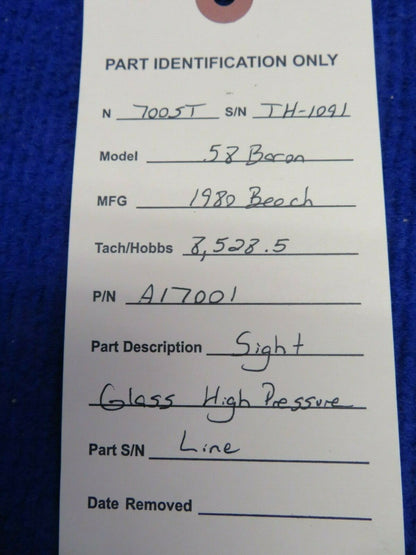 PART IDENTIFICATION ONLY
N 7005T S/N TH-1091
Model 58 Baron
MFG 1980 Beech
Tach/Hobbs 8,528.5
P/N A17001
Part Description Sight
Glass High Pressure
Part S/N Line
Date Removed